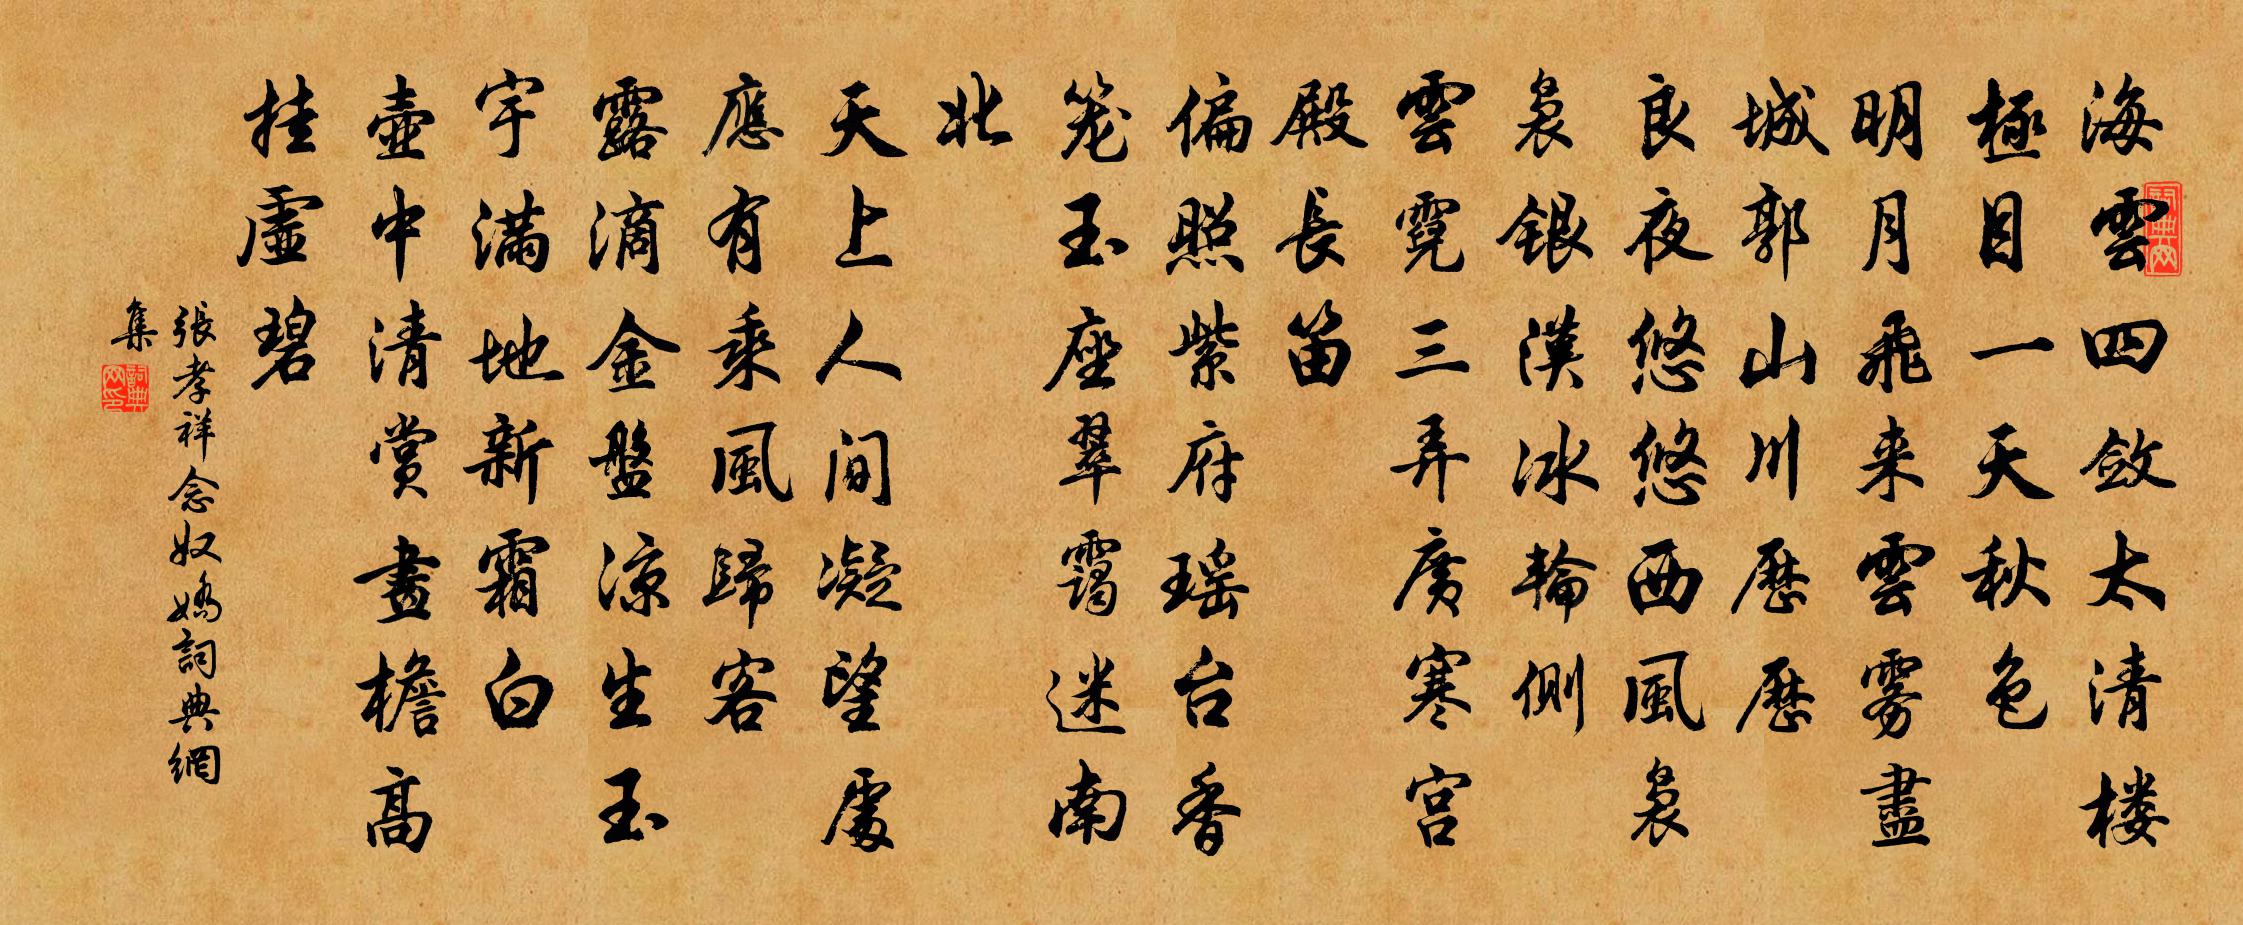 海雲四斂太清楼
極目一天秋色
明月飛来雲雾盡
城郭山川歷歷
良夜悠悠西風裊
裊銀漢冰輪側
雲霓三弄廣寒宫
殿長笛
偏照紫府瑶台香
笼玉座翠靄迷南
北
天上人间凝望處
應有乘風歸客
露滴金盤凉生玉
宇满地新霜白
壺中清赏畫檐高
挂虚碧
張孝祥念奴嬌詞典網
集
詞典网
詞典网印